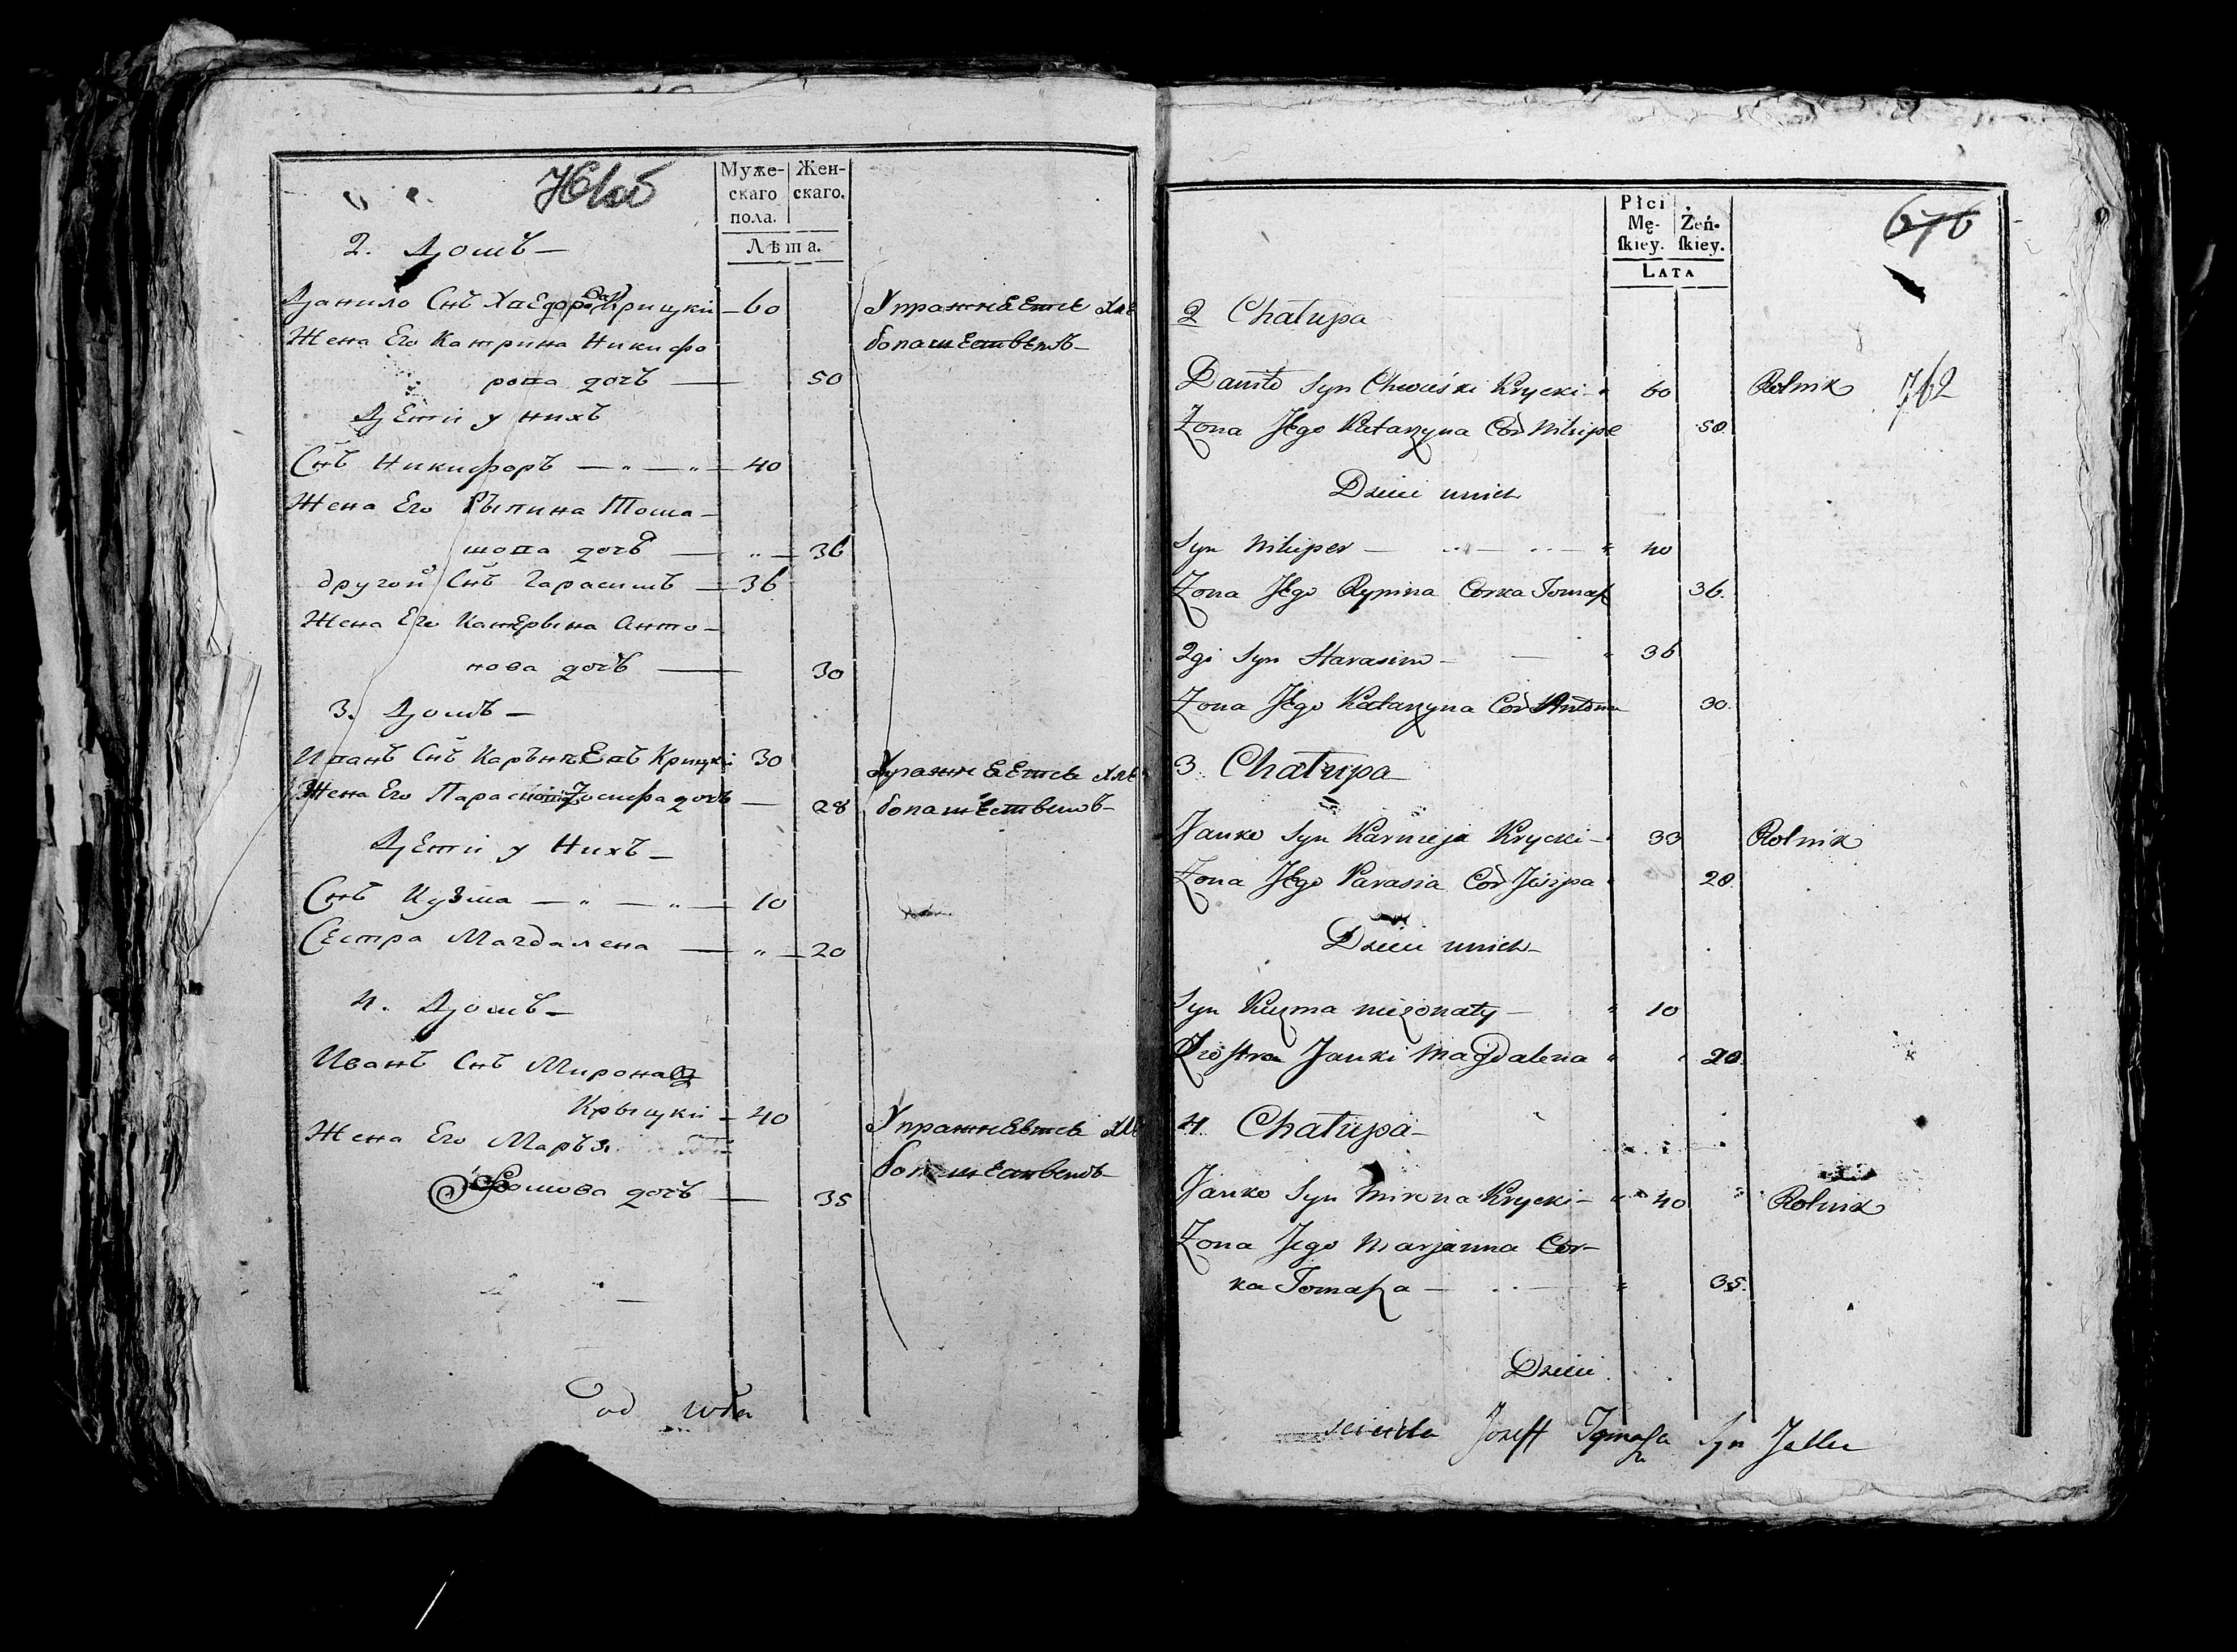 Муже-
скаго
пола.
Жен-
скаго.
Лѣта.
2. Домъ —
Данило Снъ Хведора Крицкій — 60
Упражняется хлѣ
Жена Его Катрина Никифо
бопашествемъ —
рова дочъ — 50
Дети у нихъ
Снъ Никифоръ — „ — „ — 40
Жена Его Рыпина Тома-
шова дочъ — „ — 36
другой Снъ Гарасимъ — 36
Жена Его Катерына Анто-
нова дочъ — 30
3. Домъ —
Иванъ Снъ Карънѣевъ Крицкій 30
Упражняется хлѣ
Жена Его Параска Іосифа дочъ — 28
бопашествемъ —
Дети у Нихъ —
Снъ Кузма — „ — „ — 10
Сестра Магдалена — „ — 20
4. Домъ —
Иванъ Снъ Мирона
Крыцкій — 40
Упражняется хлѣ
Жена Его
бопашествемъ —
Фомова дочъ — 35
Płci
Mę-
ſkiey.
Żeń-
ſkiey.
LATA
676
2 Chałupa
Daniło Syn Krycki — 60
Rolnik
762
Żona Jego Katarzyna Cór Nikipe 50.
Dzieci u nich
Syn Nikiper — 40
Żona Jego Rypina Corka Tomaſz 36.
2gi Syn Harasim — 36
Żona Jego Katarzyna Cór Antona 30.
3. Chałupa
Janko Syn Karnieja Krycki — 33
Rolnik
Żona Jego Parasia Cór Jósipa 28.
Dzieci u nich —
Syn Kuzma nieżonaty — 10
Siostra Janki Magdalena 20.
4. Chałupa —
Janko Syn Mirona Krycki — 40
Rolnik
Żona Jego Marjanna Cor-
ka Tomaſza — 35.
Dzieci
Jozeff Tomaſza Syn